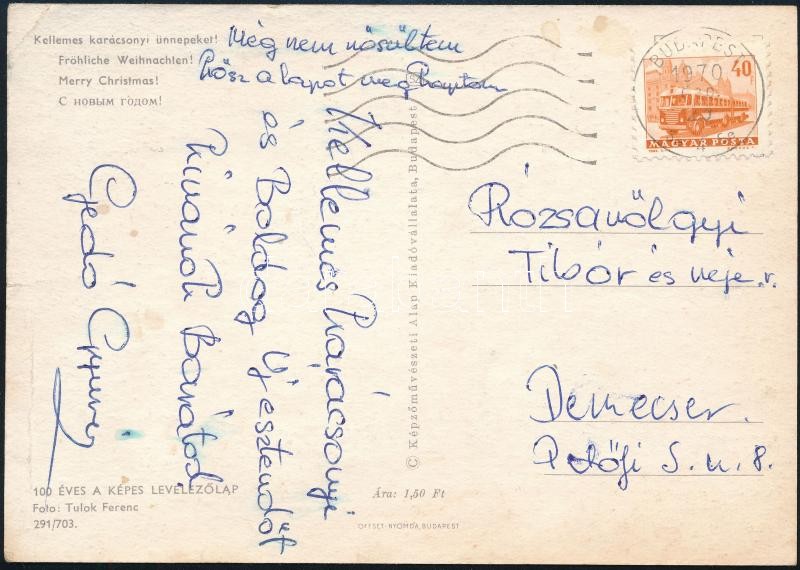 Kellemes karácsonyi ünnepeket!
Fröhliche Weihnachten!
Merry Christmas!
С новым годом!
Még nem nősültem
Kösz a lapot meg kaptam
Kellemes Karácsonyi
és Boldog Új esztendőt
Kívánok Barátod,
Gedó György
100 ÉVES A KÉPES LEVELEZŐLAP
Foto: Tulok Ferenc
291/703.
© Képzőművészeti Alap Kiadóvállalata, Budapest
Ára: 1,50 Ft
OFFSET-NYOMDA, BUDAPEST
BUDAPEST
1970
40
MAGYAR POSTA
Rózsavölgyi
Tibór és neje.
Demecser.
Petőfi S. u. 8.